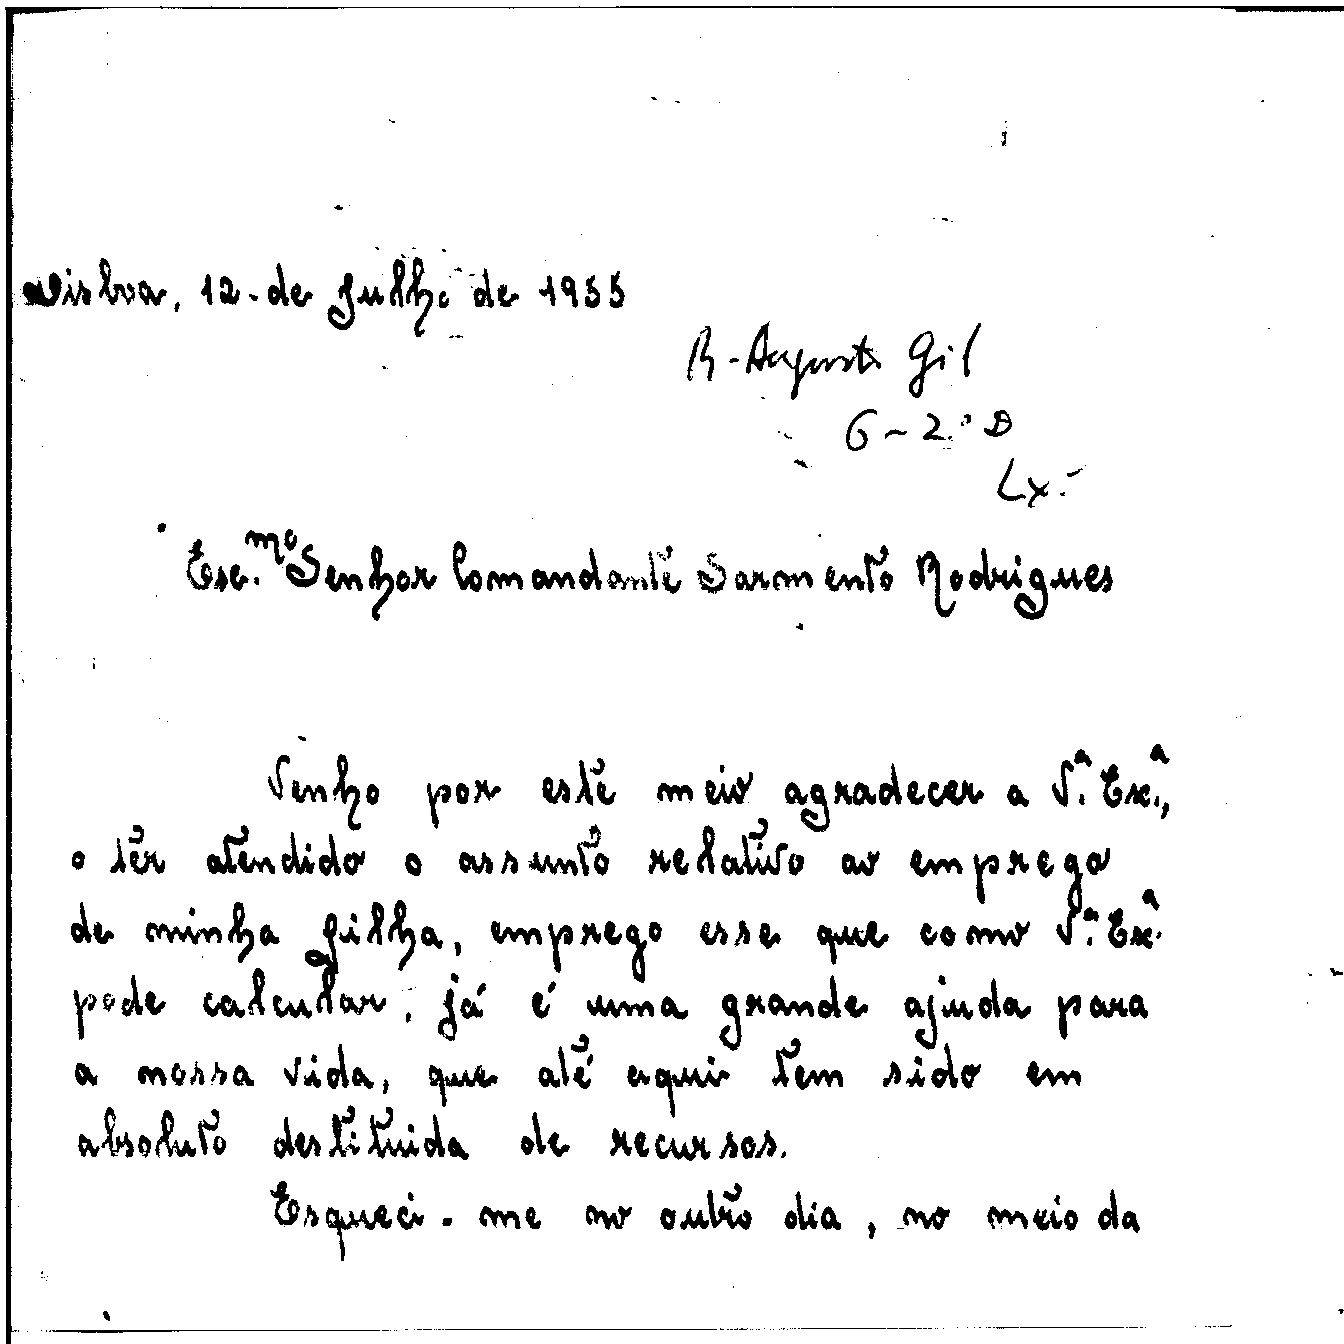 Lisboa, 12-de Julho de 1955
R-Augusto Gil
6-2.º D
Lx.ª
Exc.mo Senhor Comandante Sarmento Rodrigues
Venho por este meio agradecer a V.ª Ex.ª,
o ter atendido o assunto relativo ao emprego
de minha filha, emprego esse que como V.ª Ex.ª
pode calcular, já é uma grande ajuda para
a nossa vida, que até aqui tem sido em
absoluto destituida de recursos.
Esqueci-me no outro dia, no meio da